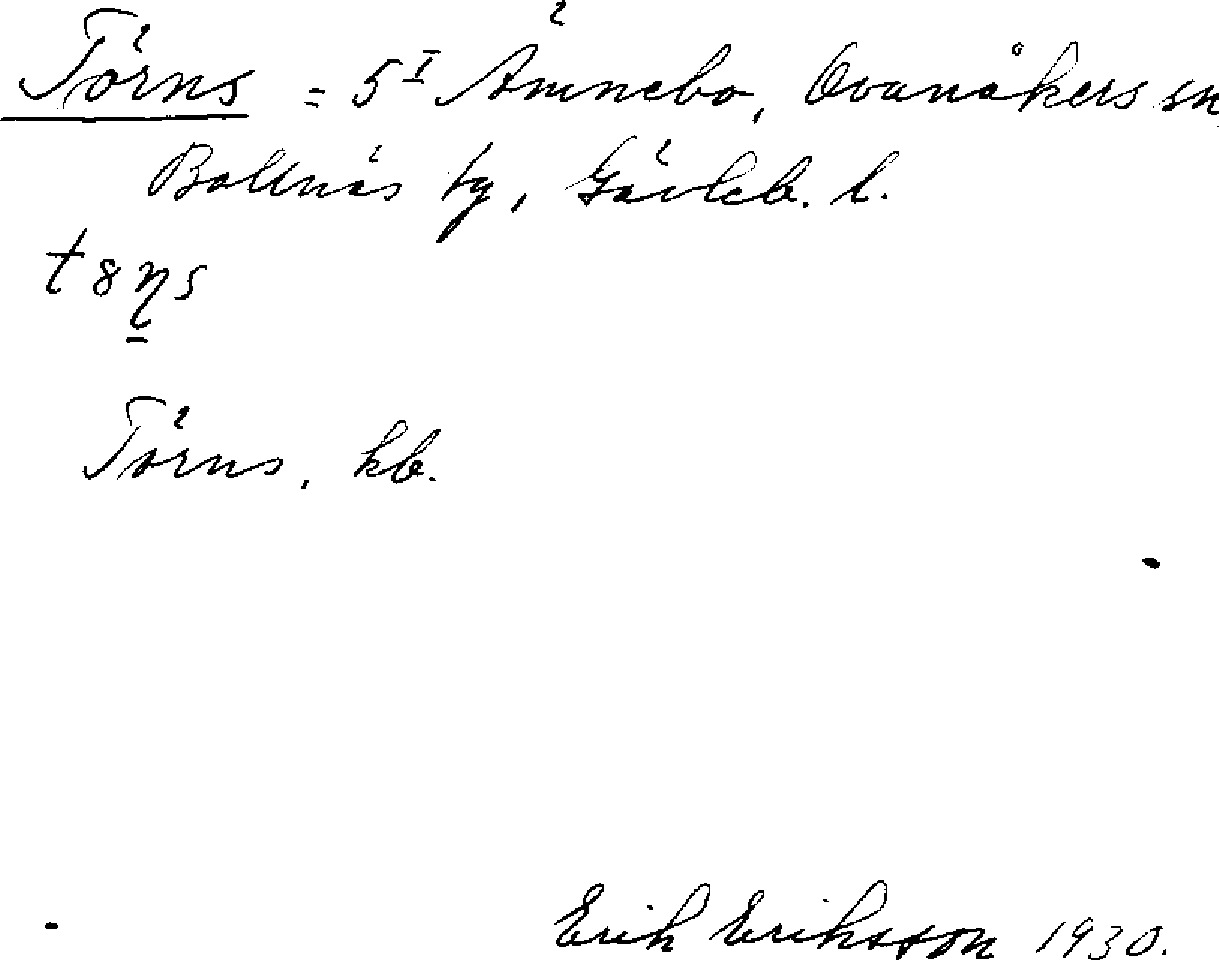 Törns = 5 I Ämnebo, Ovanåkers sn,
Bollnäs tg, Gävleb. l.
t8ɳs
Törns, kb.
Erik Eriksson 1930.